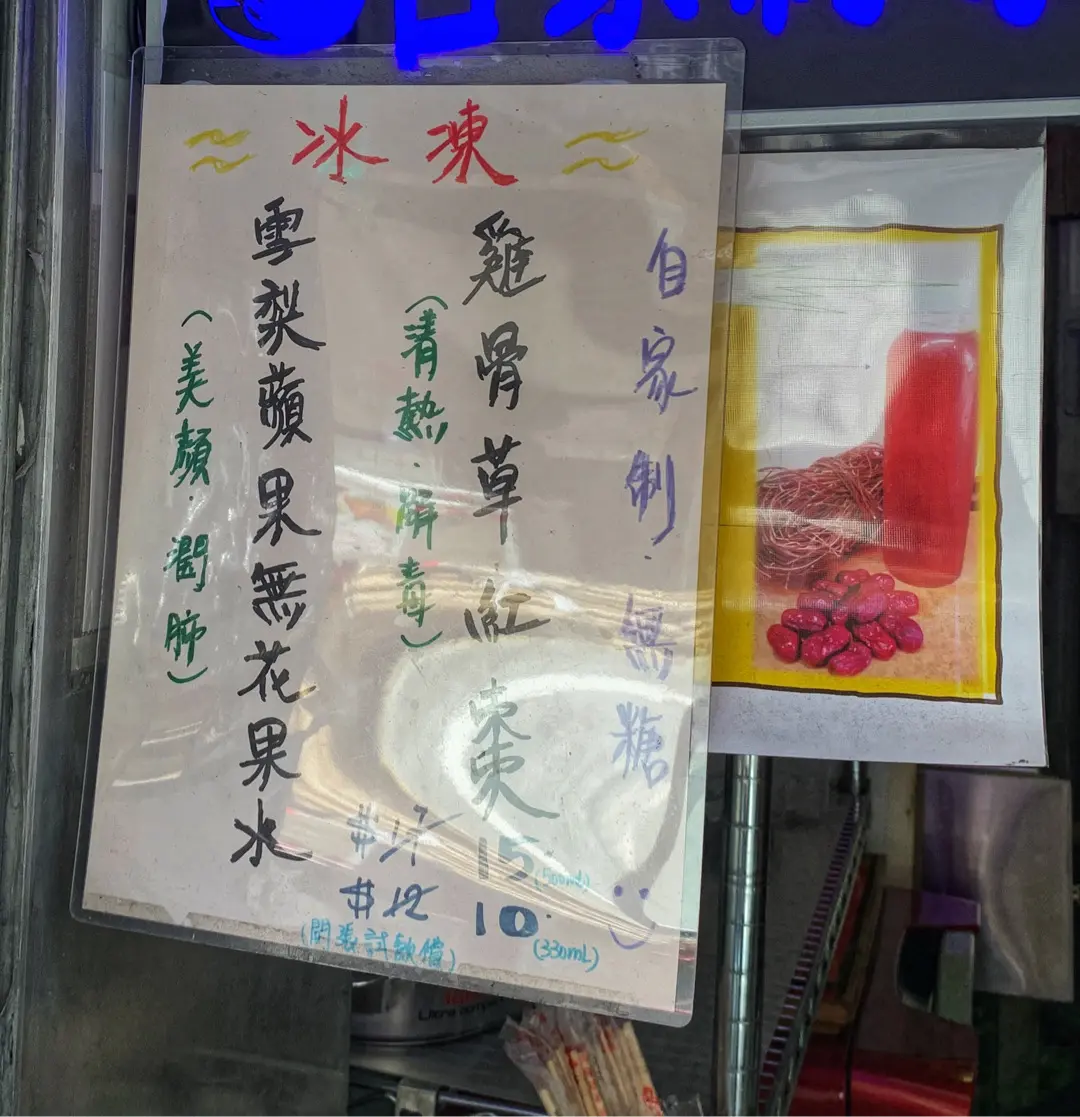 冰凍
自家制·無糖
雞骨草·紅棗
15 (500mL)
10 (330mL)
(清熱·解毒)
雪梨蘋果無花果水
$17
$12
(開張試飲價)
(美顏·潤肺)